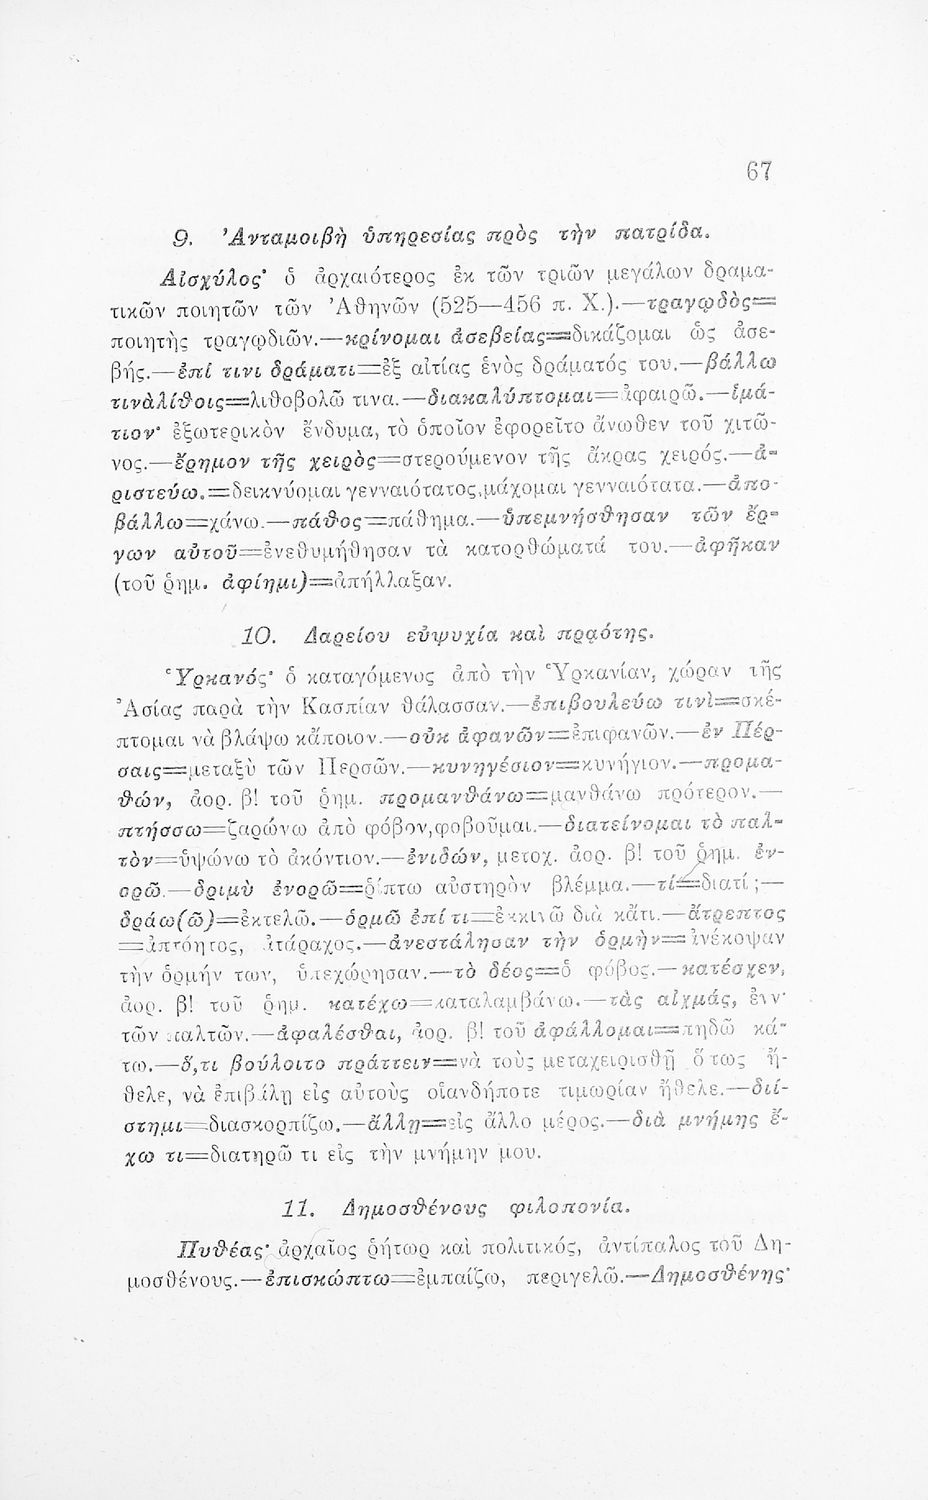 67
9. Ἀνταμοιβὴ ὑπηρεσίας πρὸς τὴν πατρίδα.
Αἰσχύλος· ὁ ἀρχαιότερος ἐκ τῶν τριῶν μεγάλων δραμα-
τικῶν ποιητῶν τῶν Ἀθηνῶν (525—456 π. Χ.).—τραγῳδὸς=
ποιητὴς τραγῳδιῶν.—κρίνομαι ἀσεβείας=δικάζομαι ὡς ἀσε-
βής.—ἐπί τινι δράματι=ἐξ αἰτίας ἑνὸς δράματός του.—βάλλω
τινὰλίθοις=λιθοβολῶ τινα.—διακαλύπτομαι=ἀφαιρῶ.—ἱμά-
τιον· ἐξωτερικὸν ἔνδυμα, τὸ ὁποῖον ἐφορεῖτο ἄνωθεν τοῦ χιτῶ-
νος.—ἔρημον τῆς χειρὸς=στερούμενον τῆς ἄκρας χειρός.—ἀ-
ριστεύω.=δεικνύομαι γενναιότατος,μάχομαι γενναιότατα.—ἀπο-
βάλλω=χάνω.—πάθος=πάθημα.—ὑπεμνήσθησαν τῶν ἔρ-
γων αὐτοῦ=ἐνεθυμήθησαν τὰ κατορθώματά του.—ἀφῆκαν
(τοῦ ῥημ. ἀφίημι)=ἀπήλλαξαν.
10. Δαρείου εὐψυχία καὶ πρᾳότης.
Ὑρκανός· ὁ καταγόμενος ἀπὸ τὴν Ὑρκανίαν, χώραν τῆς
Ἀσίας παρὰ τὴν Κασπίαν θάλασσαν.—ἐπιβουλεύω τινὶ=σκέ-
πτομαι νὰ βλάψω κἄποιον.—οὐκ ἀφανῶν=ἐπιφανῶν.—ἐν Πέρ-
σαις=μεταξὺ τῶν Περσῶν.—κυνηγέσιον=κυνήγιον.—προμα-
θών, ἀορ. β! τοῦ ῥημ. προμανθάνω=μανθάνω πρότερον.—
πτήσσω=ζαρώνω ἀπὸ φόβον,φοβοῦμαι.—διατείνομαι τὸ παλ-
τὸν=ὑψώνω τὸ ἀκόντιον.—ἐνιδών, μετοχ. ἀορ. β! τοῦ ῥημ. ἐν-
ορῶ.—δριμὺ ἐνορῶ=ῥίπτω αὐστηρὸν βλέμμα.—τί=διατί;—
δράω(ῶ)=ἐκτελῶ.—ὁρμῶ ἐπί τι=ξεκινῶ διὰ κἄτι.—ἄτρεπτος
=ἀπτόητος, ἀτάραχος.—ἀνεστάλησαν τὴν ὁρμὴν=ἀνέκοψαν
τὴν ὁρμήν των, ὑπεχώρησαν.—τὸ δέος=ὁ φόβος.—κατέσχεν,
ἀορ. β! τοῦ ῥημ. κατέχω=καταλαμβάνω.—τὰς αἰχμάς, ἐνν·
τῶν παλτῶν.—ἀφαλέσθαι, ἀορ. β! τοῦ ἀφάλλομαι=πηδῶ κά-
τω.—ὅ,τι βούλοιτο πράττειν=νὰ τοὺς μεταχειρισθῇ ὅπως ἤ-
θελε, νὰ ἐπιβάλῃ εἰς αὐτοὺς οἱανδήποτε τιμωρίαν ἤθελε.—διί-
στημι=διασκορπίζω.—ἄλλῃ=εἰς ἄλλο μέρος.—διὰ μνήμης ἔ-
χω τι=διατηρῶ τι εἰς τὴν μνήμην μου.
11. Δημοσθένους φιλοπονία.
Πυθέας· ἀρχαῖος ῥήτωρ καὶ πολιτικός, ἀντίπαλος τοῦ Δη-
μοσθένους.—ἐπισκώπτω=ἐμπαίζω, περιγελῶ.—Δημοσθένης·